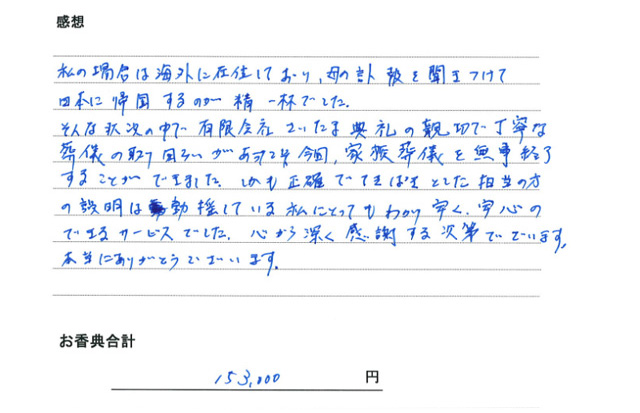 感想
私の場合は海外に在住しており,母の訃報を聞きつけて
日本に帰国するのが精一杯でした.
そんな状況の中で有限会社さいたま典礼の親切で丁寧な
葬儀の取り回しがあってこそ今回,家族葬儀を無事終了
することができました.しかも正確でてきぱきとした担当の方
の説明は動揺している私にとってもわかり安く,安心の
できるサービスでした.心から深く感謝する次第でございます,
本当にありがとうございます.
お香典合計
153,000 円